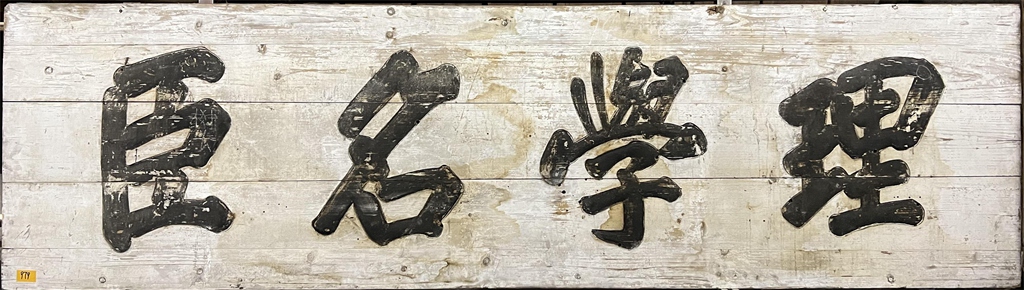 理學名臣
474